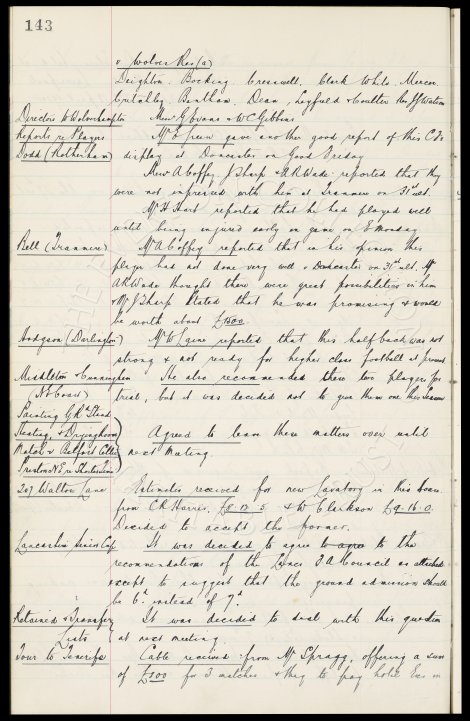 143
v Wolves Res (a)
Deighton. Bocking. Cresswell. Clark White. Mercer
Critchley. Bentham. Dean. Leyfield & Coulter. Watson
Directors to Wolverhampton Messrs G Evans & W C Gibbins
Reports re Players Mr E Green gave another good report of this C.F's
Dodd (Rotherham) display at Doncaster on Good Friday
Messrs A Coffey J Sharp & A R Wade reported that they
were not impressed with him at Tranmere on 31st ult.
Mr H Hart reported that he had played well
until being injured early in game on E Monday
Bell (Tranmere) Mr A Coffey reported that in his opinion this
player had not done very well v Doncaster on 31st ult. Mr
A R Wade thought there were great possibilities in him
& Mr J Sharp stated that he was promising & would
be worth about £1500.
Hodgson (Darlington) Mr W reported that this half back was not
strong & not ready for higher class football at present
Middleton & Cunningham He also recommended these two players for
trial, but it was decided not to give them one this season
Painting G.R. Stand
Heating, & Drying Room Agreed to leave these matters over until
& Belfast Celtic next meeting.
Preston N.E. re
207 Walton Lane Estimates received for new Lavatory in this house
from C R Harris. £8.12.5 & W Clarkson £9.16.0.
Decided to accept the former.
Lancashire Senior Cup It was decided to agree to the
recommendations of the Lancs F.A. Council as attached
except to suggest that the ground admission should
be 6d instead of 7d.
Retained & Transfer It was decided to deal with this question
Lists at next meeting.
Tour to Tenerife Cable received from Mr Spragg, offering a sum
of £300 for 3 matches & they to pay hotel Exs in